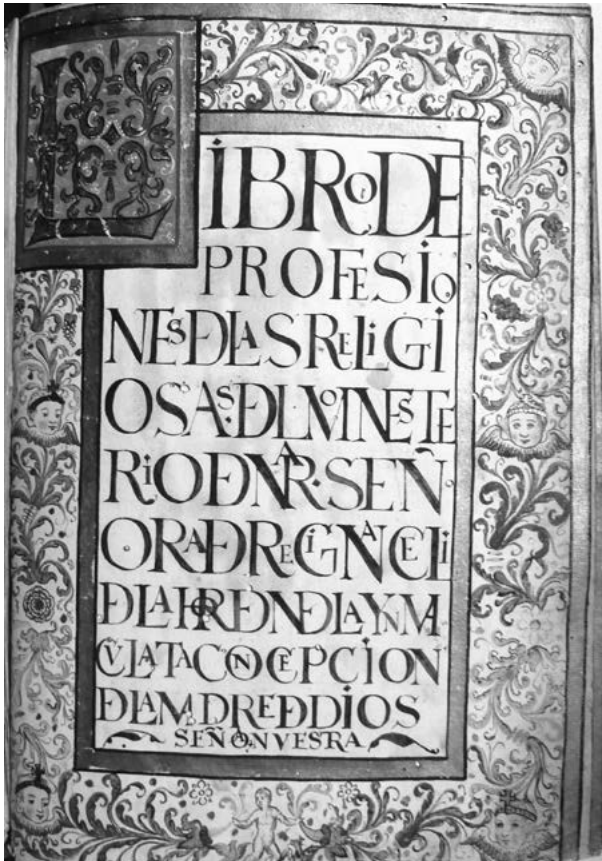 LIBRO DE
PROFESIO
NES DE LAS RELIGI
OSAS. DEL MONESTE
RIO DE NRA. SEÑ
ORA DE REGINA CELI
DE LA HORDEN DE LA YNM
CVLATA CONCEPCION
DE LA MADRE DE DIOS
SEÑORA NVESTRA